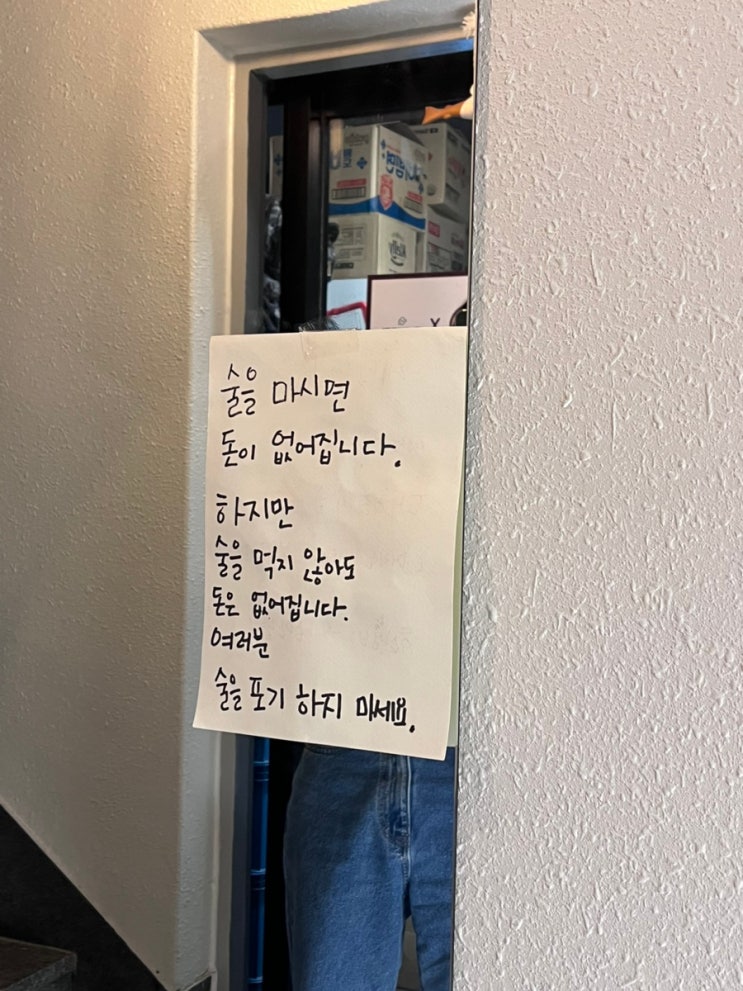 술을 마시면
돈이 없어집니다.
하지만
술을 먹지 않아도
돈은 없어집니다.
여러분
술을 포기 하지 마세요.